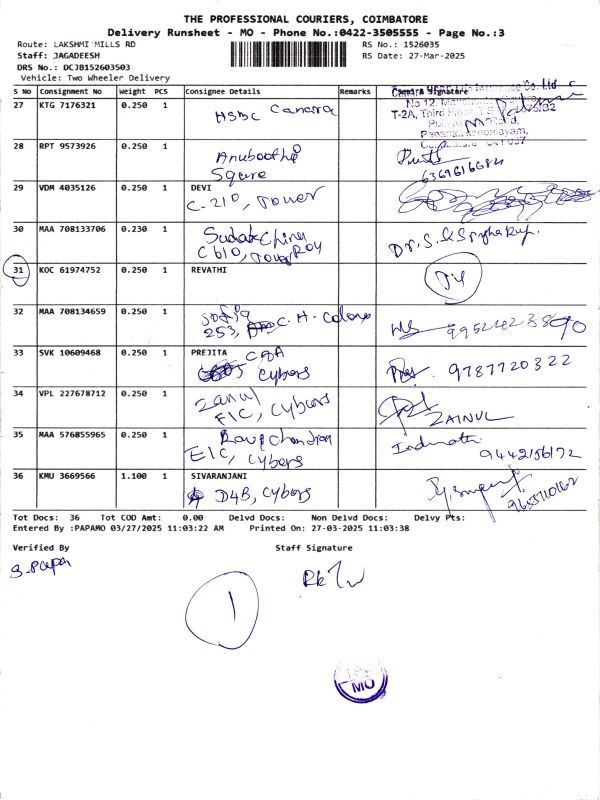 THE PROFESSIONAL COURIERS, COIMBATORE
Delivery Runsheet - MO - Phone No.:0422-3505555 - Page No.:3
Route: LAKSHMI MILLS RD
RS No.: 1526035
Staff: JAGADEESH
RS Date: 27-Mar-2025
DRS No.: DCJB152603503
Vehicle: Two Wheeler Delivery
S No Consignment No Weight PCS Consignee Details Remarks Signature
27 KTG 7176321 0.250 1 HSBC Canara
28 RPT 9573926 0.250 1 Anuboothi
Squre 6369616684
29 VDM 4035126 0.250 1 DEVI
C-210, Tower
30 MAA 708133706 0.230 1
C610, Tower Roy
31 KOC 61974752 0.250 1 REVATHI
32 MAA 708134659 0.250 1
253, C.H-Colony 9952423890
33 SVK 10609468 0.250 1 PREJITA
Cybers 9787720322
34 VPL 227678712 0.250 1 Zanul
E1C, Cybers ZAINUL
35 MAA 576855965 0.250 1 Ravichandran
E1C, Cybers 9442156172
36 KMU 3669566 1.100 1 SIVARANJANI
D4B, Cybers
Tot Docs: 36 Tot COD Amt: 0.00 Delvd Docs: Non Delvd Docs: Delvy Pts:
Entered By :PAPAMO 03/27/2025 11:03:22 AM Printed On: 27-03-2025 11:03:38
Verified By Staff Signature
S. Papa
1
MO